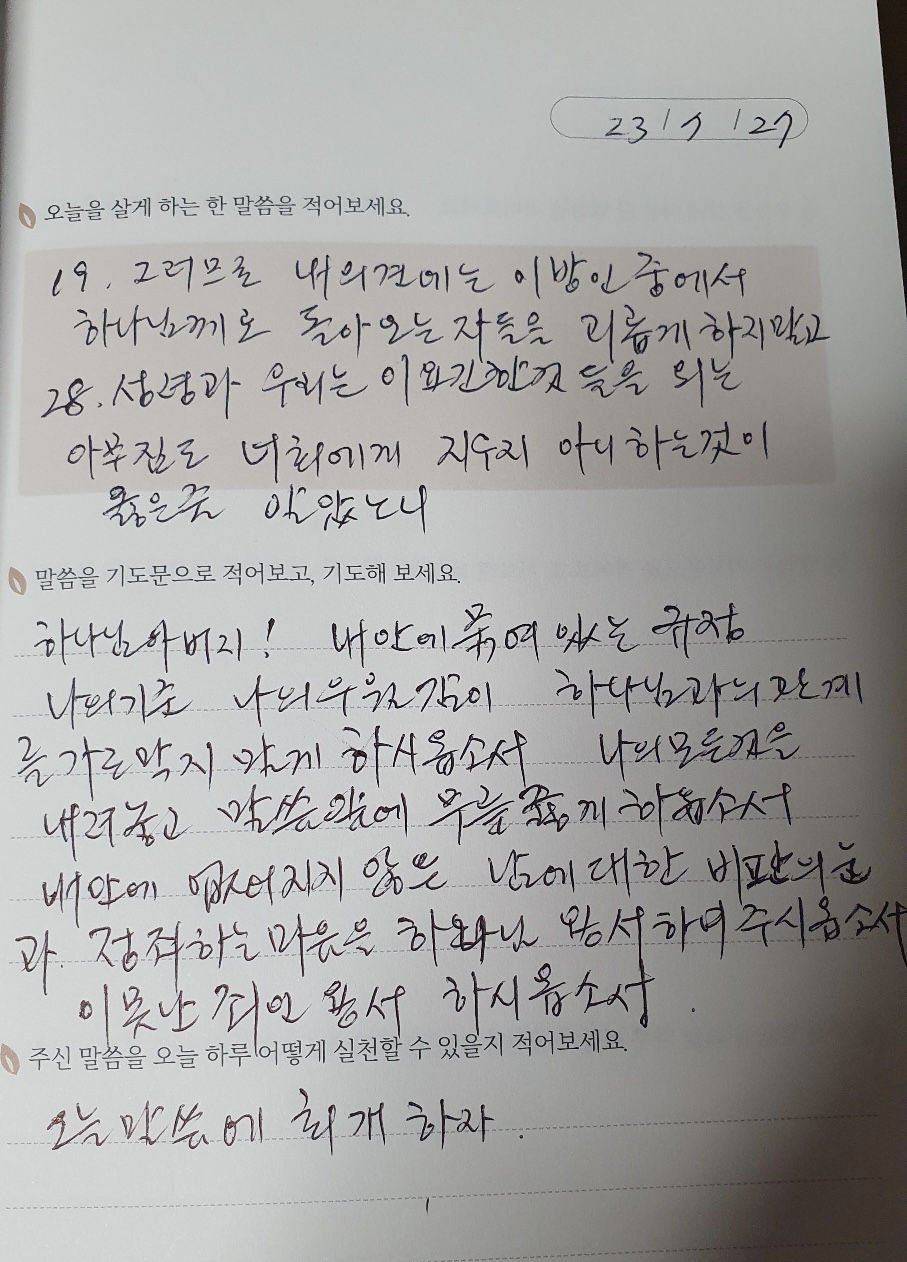 23 / 7 / 27
오늘을 살게 하는 한 말씀을 적어보세요.
19. 그러므로 내 의견에는 이방인 중에서
하나님께로 돌아오는 자들을 괴롭게 하지말고
28. 성령과 우리는 이 요긴한것 들을 외는
아무 짐도 너희에게 지우지 아니 하는것이
옳은줄 알았노니
말씀을 기도문으로 적어보고, 기도해 보세요.
하나님아버지! 내안에 묶여 있는 규정
나의기준 나의우월감이 하나님과의 관계
를 가로막지 않게 하시옵소서 나의모든것을
내려놓고 말씀앞에 무릎 꿇게 하옵소서
내안에 없어지지 않은 남에 대한 비판의 눈
과 정죄하는 마음을 하나님 용서하여 주시옵소서
이 못난 죄인 용서 하시옵소서.
주신 말씀을 오늘 하루 어떻게 실천할 수 있을지 적어보세요.
오늘 말씀에 회개 하자.